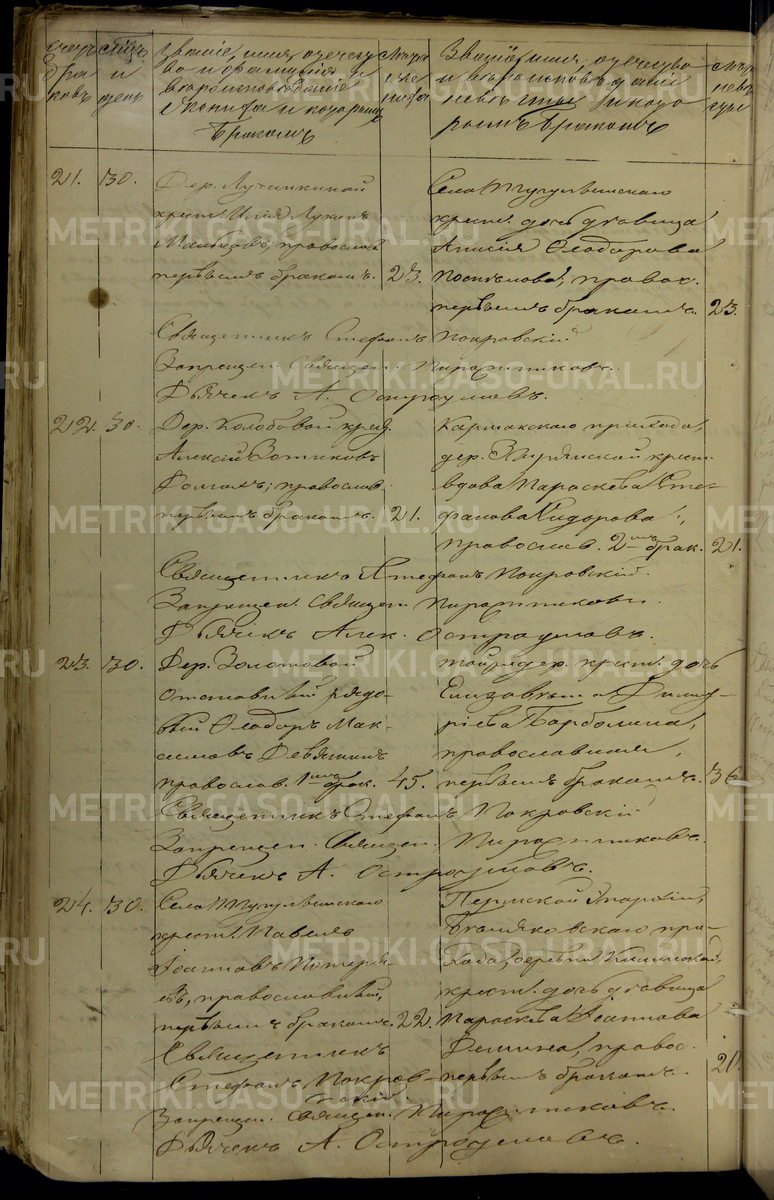 Счетъ браковъ
мѣсяцъ и день
Званіе, имя, отечест
во и фамилія и
вѣроисповѣданіе
жениха и которымъ
бракомъ
Лѣта
жениха
Званіе, имя, отечество
и вѣроисповѣданіе
невѣсты и кото
рымъ бракомъ
Лѣта
невѣсты
21. 30.
крест. Илія Лукинъ
Мальцовъ, православ
первымъ бракомъ. 23.
Села Тугулымскаго
крест. дочь дѣвица
Анисія Ѳеодорова
Поспѣлова, правос.
первымъ бракомъ. 23.
Священникъ Стефанъ Покровскій
Запрещен. Священ.
Дьячекъ А. Остроумовъ.
22. 30.
Дер. Колобовой крест.
Алексій Зотиковъ
православ.
первымъ бракомъ. 21.
Кармакскаго прихода,
дер. Зырянской крест.
вдова Параскева Сте-
фанова Сидорова,
православ. 2мъ брак. 21.
Священникъ Стефанъ Покровскій.
Запрещен. Священ.
Дьячекъ Алек. Остроумовъ.
23. 30.
Дер. Золотовой
отставный рядо-
вый Ѳеодоръ Мак-
симовъ Девяткинъ
православ. 1мъ брак. 45.
той же дер. крест. дочь
Елизавета Димит-
ріева
православная,
первымъ бракомъ. 36
Священникъ Стефанъ Покровскій
Запрещен. Священ.
Дьячекъ А. Остроумовъ.
24. 30.
Села Тугулымскаго
крест. Павелъ
Іоанновъ Потеря-
евъ, православный,
первымъ бракомъ. 22.
Пермской Епархіи,
при-
хода, деревни
крест. дочь дѣвица
Параскева Іоаннова
Демина, правос.
первымъ бракомъ. 20.
Священникъ
Стефанъ Покров-
скій.
Запрещен. Священ.
Дьячекъ А. Остроумовъ.
METRIKI.GASO-URAL.RU